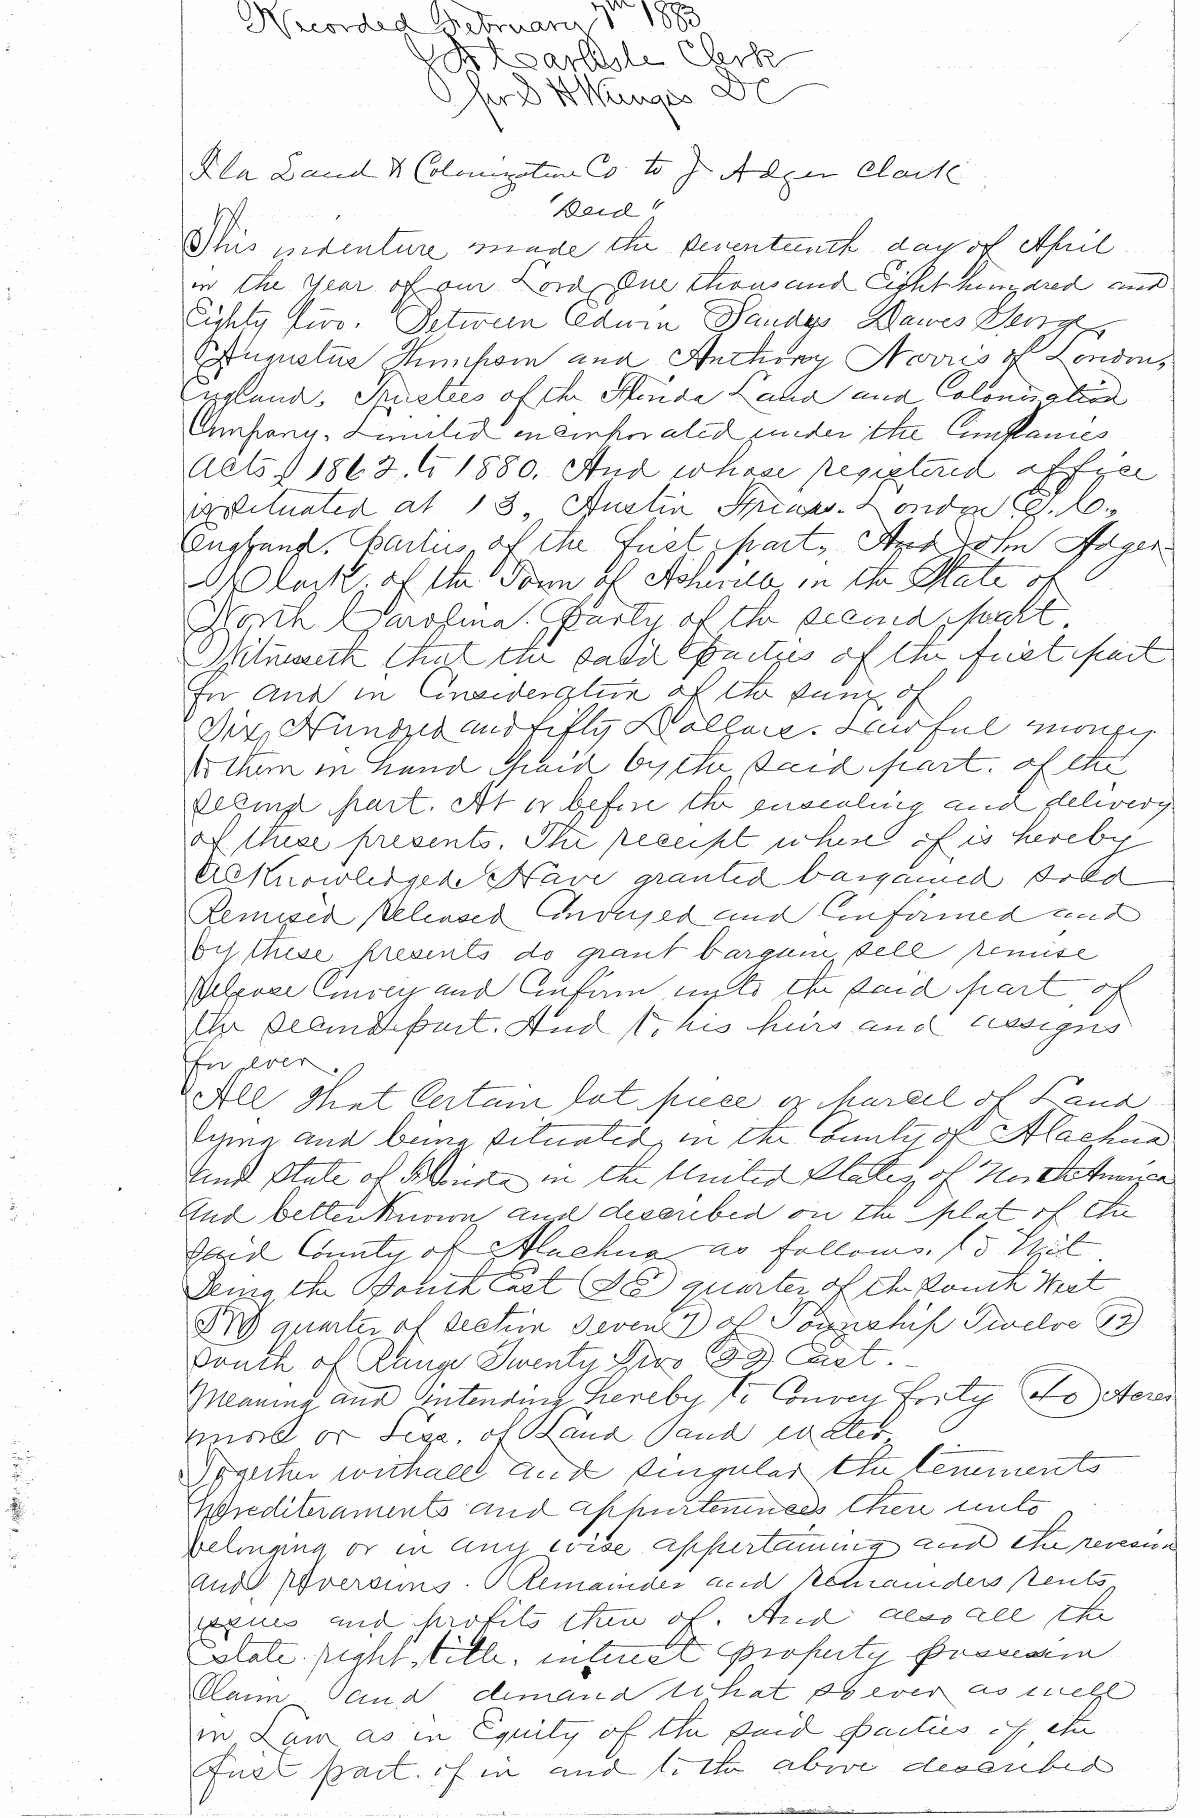 Recorded February 7th 1883
J A Carlisle Clerk
per S H Wienges DC
Fla Land & Colonization Co to J Adger Clark
"Deed"
This indenture made the seventeenth day of April
in the year of our Lord One thousand Eight hundred and
Eighty two. Between Edwin Sandys Dawes George
Augustus Thompson and Anthony Norris of London,
England, Trustees of the Florida Land and Colonization
Company, Limited incorporated under the Companies
Acts 1862 to 1880. And whose registered office
is situated at 13, Austin Friars. London E.C.,
England. Parties of the first part, And John Adger
Clark, of the Town of Asheville in the State of
North Carolina. Party of the second part.
Witnesseth that the said parties of the first part
for and in Consideration of the sum of
Six Hundred and fifty Dollars. Lawful money
to them in hand paid by the said part. of the
second part. At or before the ensealing and delivery
of these presents. The receipt where of is hereby
acknowledged. Have granted bargained sold
Remised released Conveyed and Confirmed and
by these presents do grant bargain sell remise
release Convey and Confirm unto the said part of
the second part. And to his heirs and assigns
for ever.
All that Certain lot piece or parcel of Land
lying and being situated in the County of Alachua
and State of Florida in the United States of North America
and better known and described on the plat of the
said County of Alachua as follows. to Wit
Being the South East (SE) quarter of the South West
SW quarter of section seven (7) of Township Twelve (12)
South of Range Twenty Two (22) East.
Meaning and intending hereby to Convey forty (40) Acres
more or Less. of Land
Together with all and singular the tenements
hereditaments and appurtenances there unto
belonging or in any wise appertaining and the revesion
and reversions. Remainder and remainders rents
issues and profits there of. And also all the
Estate right, title, interest property possession
Claim and demand what so ever as well
in Law as in Equity of the said parties of the
first part. of in and to the above described